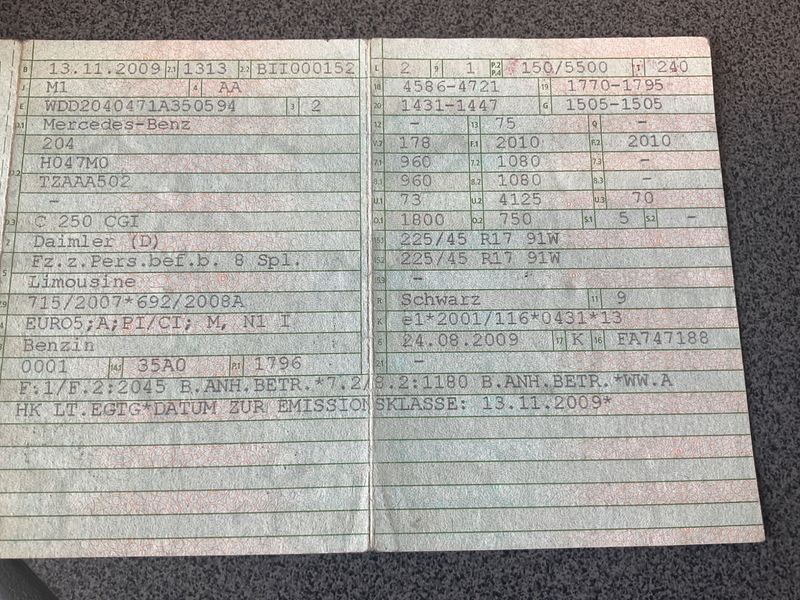 B 13.11.2009 2.1 1313 2.2 BII000152
J M1 4 AA
E WDD2040471A350594 3 2
D.1 Mercedes-Benz
204
D.2 H047M0
TZAAA502
-
D.3 C 250 CGI
2 Daimler (D)
5 Fz.z.Pers.bef.b. 8 Spl.
Limousine
V.9 715/2007*692/2008A
EURO5;A;PI/CI; M, N1 I
Benzin
0001 14.1 35A0 P.1 1796
L 2 9 1 P.2 P.4 150/5500 T 240
18 4586-4721 19 1770-1795
20 1431-1447 G 1505-1505
12 - 13 75 Q -
V.7 178 F.1 2010 F.2 2010
7.1 960 7.2 1080 7.3 -
8.1 960 8.2 1080 8.3 -
U.1 73 U.2 4125 U.3 70
O.1 1800 O.2 750 S.1 5 S.2 -
15.1 225/45 R17 91W
15.2 225/45 R17 91W
15.3 -
R Schwarz 11 9
K e1*2001/116*0431*13
6 24.08.2009 17 K 16 FA747188
21 -
F.1/F.2:2045 B.ANH.BETR.*7.2/8.2:1180 B.ANH.BETR.*WW.A
HK LT.EGTG*DATUM ZUR EMISSIONSKLASSE: 13.11.2009*